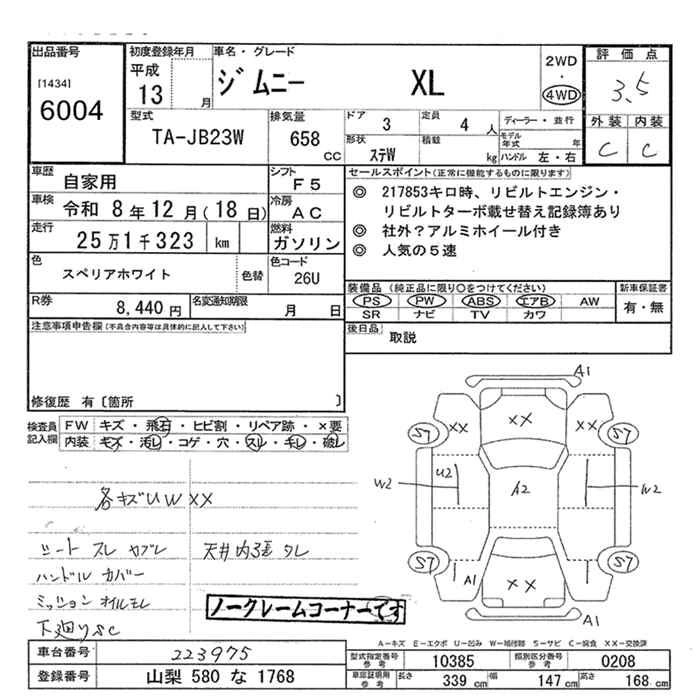 出品番号
[1434]
6004
初度登録年月
平成
13
月
車名・グレード
ジムニー XL
2WD
・
4WD
評価点
3.5
外装 内装
C C
型式
TA-JB23W
排気量
658
CC
ドア
3
定員
4
人
ディーラー・並行
形状
ステW
積載
kg
モデル年式
年
ハンドル 左・右
車歴
自家用
シフト
F5
セールスポイント(正常に機能するものに限ります)
車検
令和 8年12月(18日)
冷房
AC
◎ 217853キロ時、リビルトエンジン・
リビルトターボ載せ替え記録簿あり
◎ 社外?アルミホイール付き
◎ 人気の5速
走行
25万1千323 km
燃料
ガソリン
色
スペリアホワイト
色替
色コード
26U
装備品(純正品に限り○をつけてください)
新車保証書
PS PW ABS エアB AW
SR ナビ TV カワ
有・無
R券
8,440円
名変通知期限
月 日
後日品
取説
注意事項申告欄(不具合内容等は具体的に記入して下さい)
修復歴 有〔箇所 〕
検査員
記入欄
FW キズ・飛石・ヒビ割・リペア跡・×要
内装 キズ・汚れ・コゲ・穴・スレ・チレ・破レ
各キズUW××
シート スレ ヤブレ
天井内張 タレ
ハンドル カバー
ミッションオイルモレ
下廻りSC
ノークレームコーナーです
A1
×× ×× ××
S7 S7
W2 U2 A2 W2
S7 S7
A1 ×× A1
A1
A-キズ E-エクボ U-凹み W-補修跡 S-サビ C-腐食 XX-交換済
車台番号
223975
登録番号
山梨 580 な 1768
型式指定番号
参考
10385
類別区分番号
参考
0208
車庫証明用
参考
長さ
339 cm
幅
147 cm
高さ
168 cm